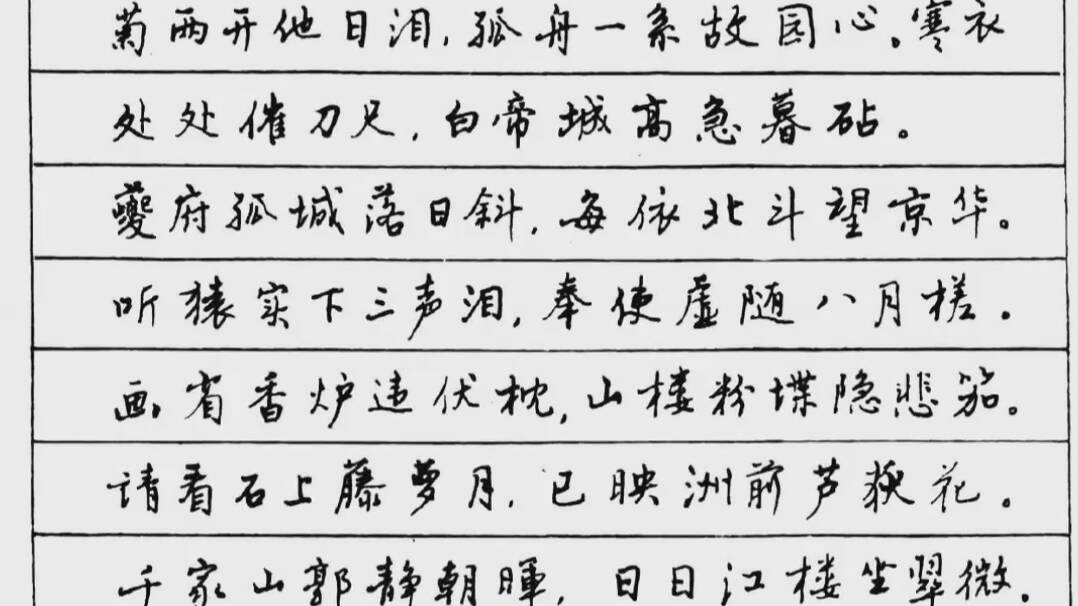 菊两开他日泪,孤舟一系故园心。寒衣
处处催刀尺,白帝城高急暮砧。
夔府孤城落日斜,每依北斗望京华。
听猿实下三声泪,奉使虚随八月槎.
画省香炉违伏枕,山楼粉堞隐悲笳。
请看石上藤萝月,已映洲前芦荻花.
千家山郭静朝晖,日日江楼坐翠微.